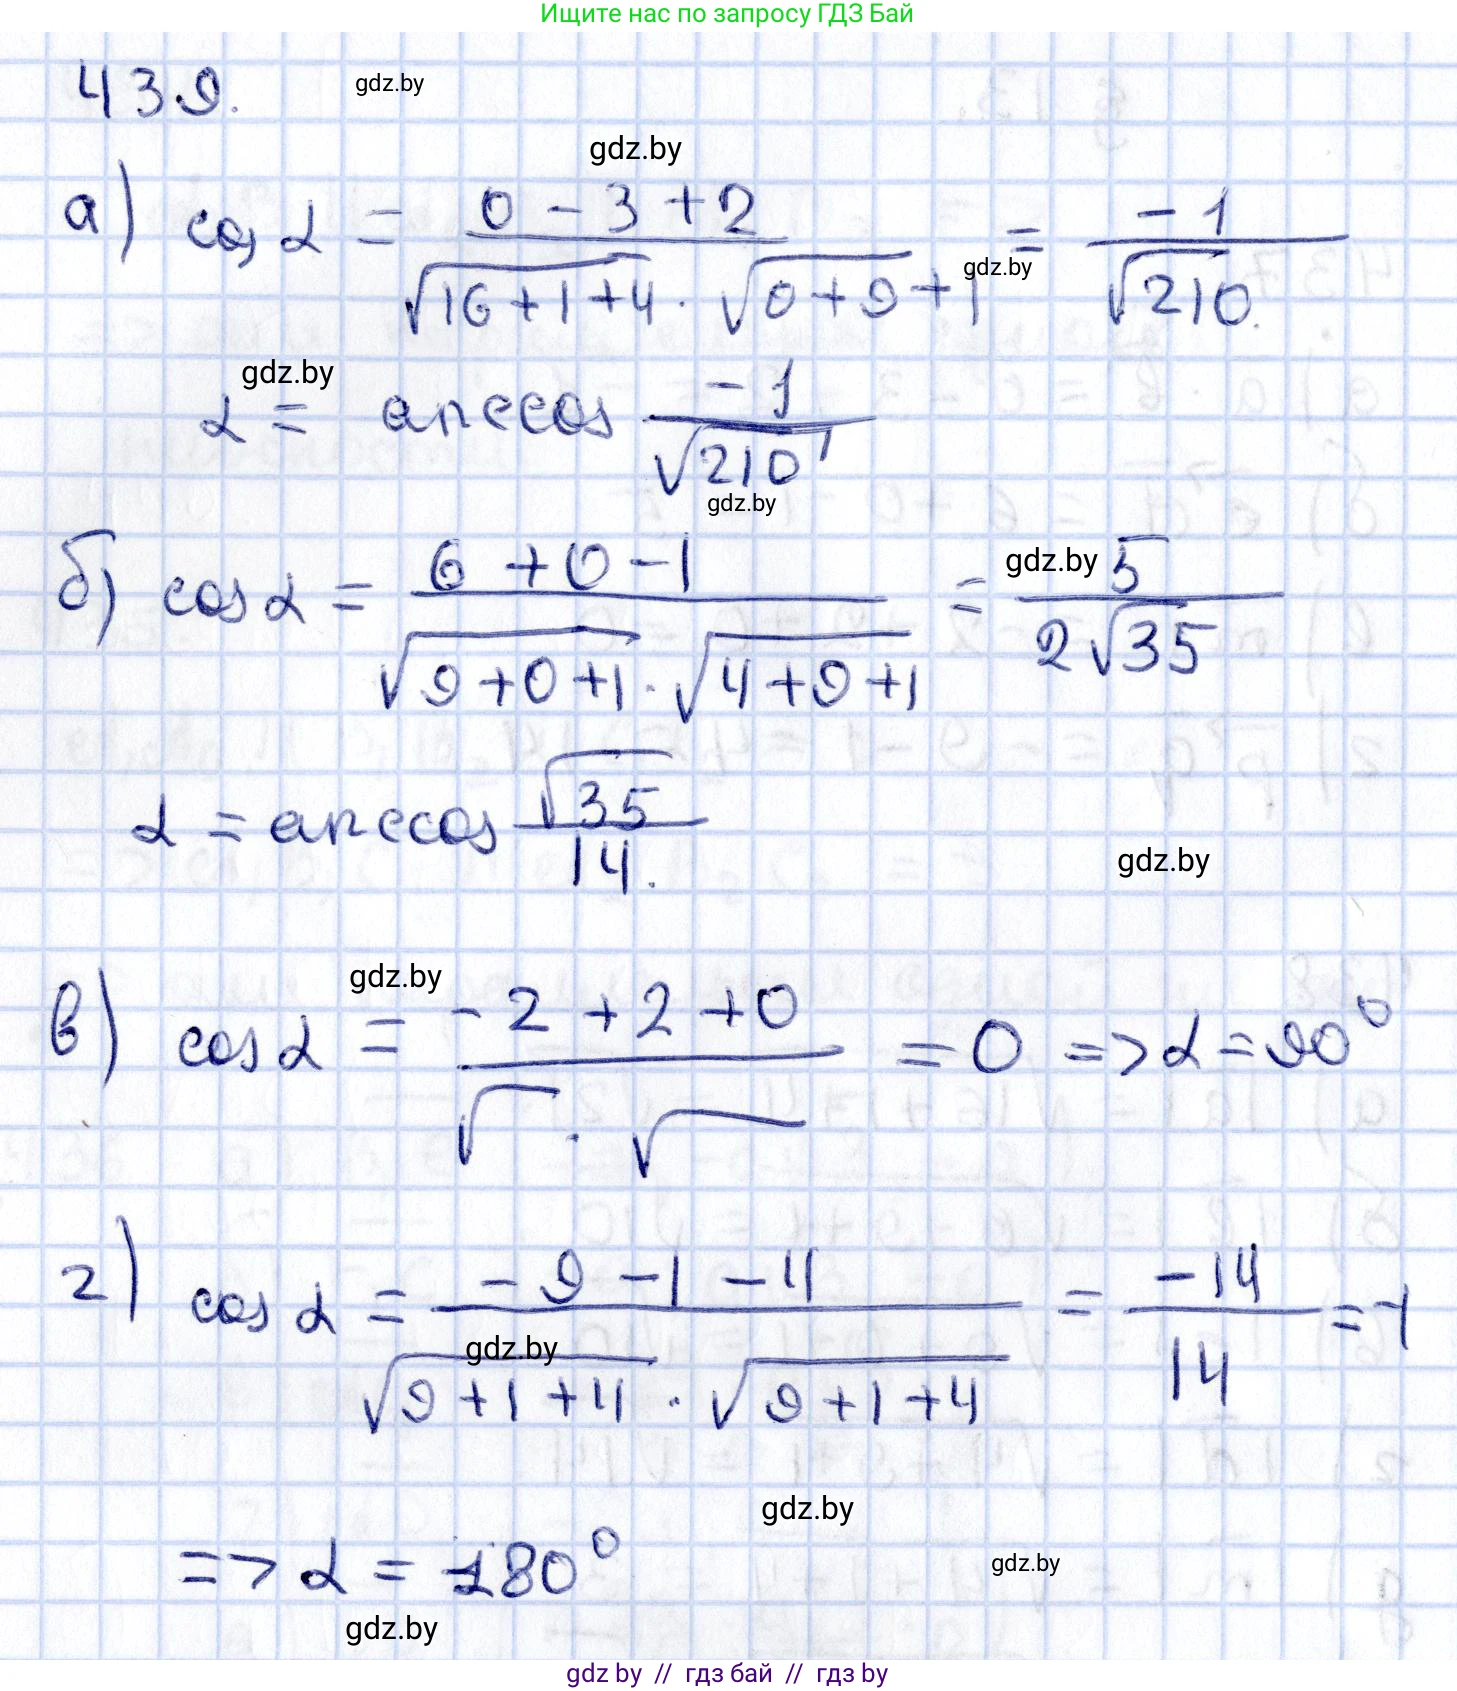 Ищите нас по запросу ГДЗ Бай
439.
gdz.by
gdz.by
а) cos α = (0 - 3 + 2)/(√(16+1+4) · √(0+9+1)) = -1/√210.
gdz.by
gdz.by
α = arccos -1/√210
gdz.by
б) cos α = (6 + 0 - 1)/(√(9+0+1) · √(4+9+1)) = 5/(2√35)
gdz.by
α = arccos √35/14.
gdz.by
gdz.by
в) cos α = (-2 + 2 + 0)/(√ · √) = 0 => α = 90°
г) cos α = (-9 - 1 - 4)/(√(9+1+4) · √(9+1+4)) = -14/14 = -1
gdz.by
gdz.by
=> α = 180°
gdz.by
gdz.by
gdz by // гдз бай // гдз by